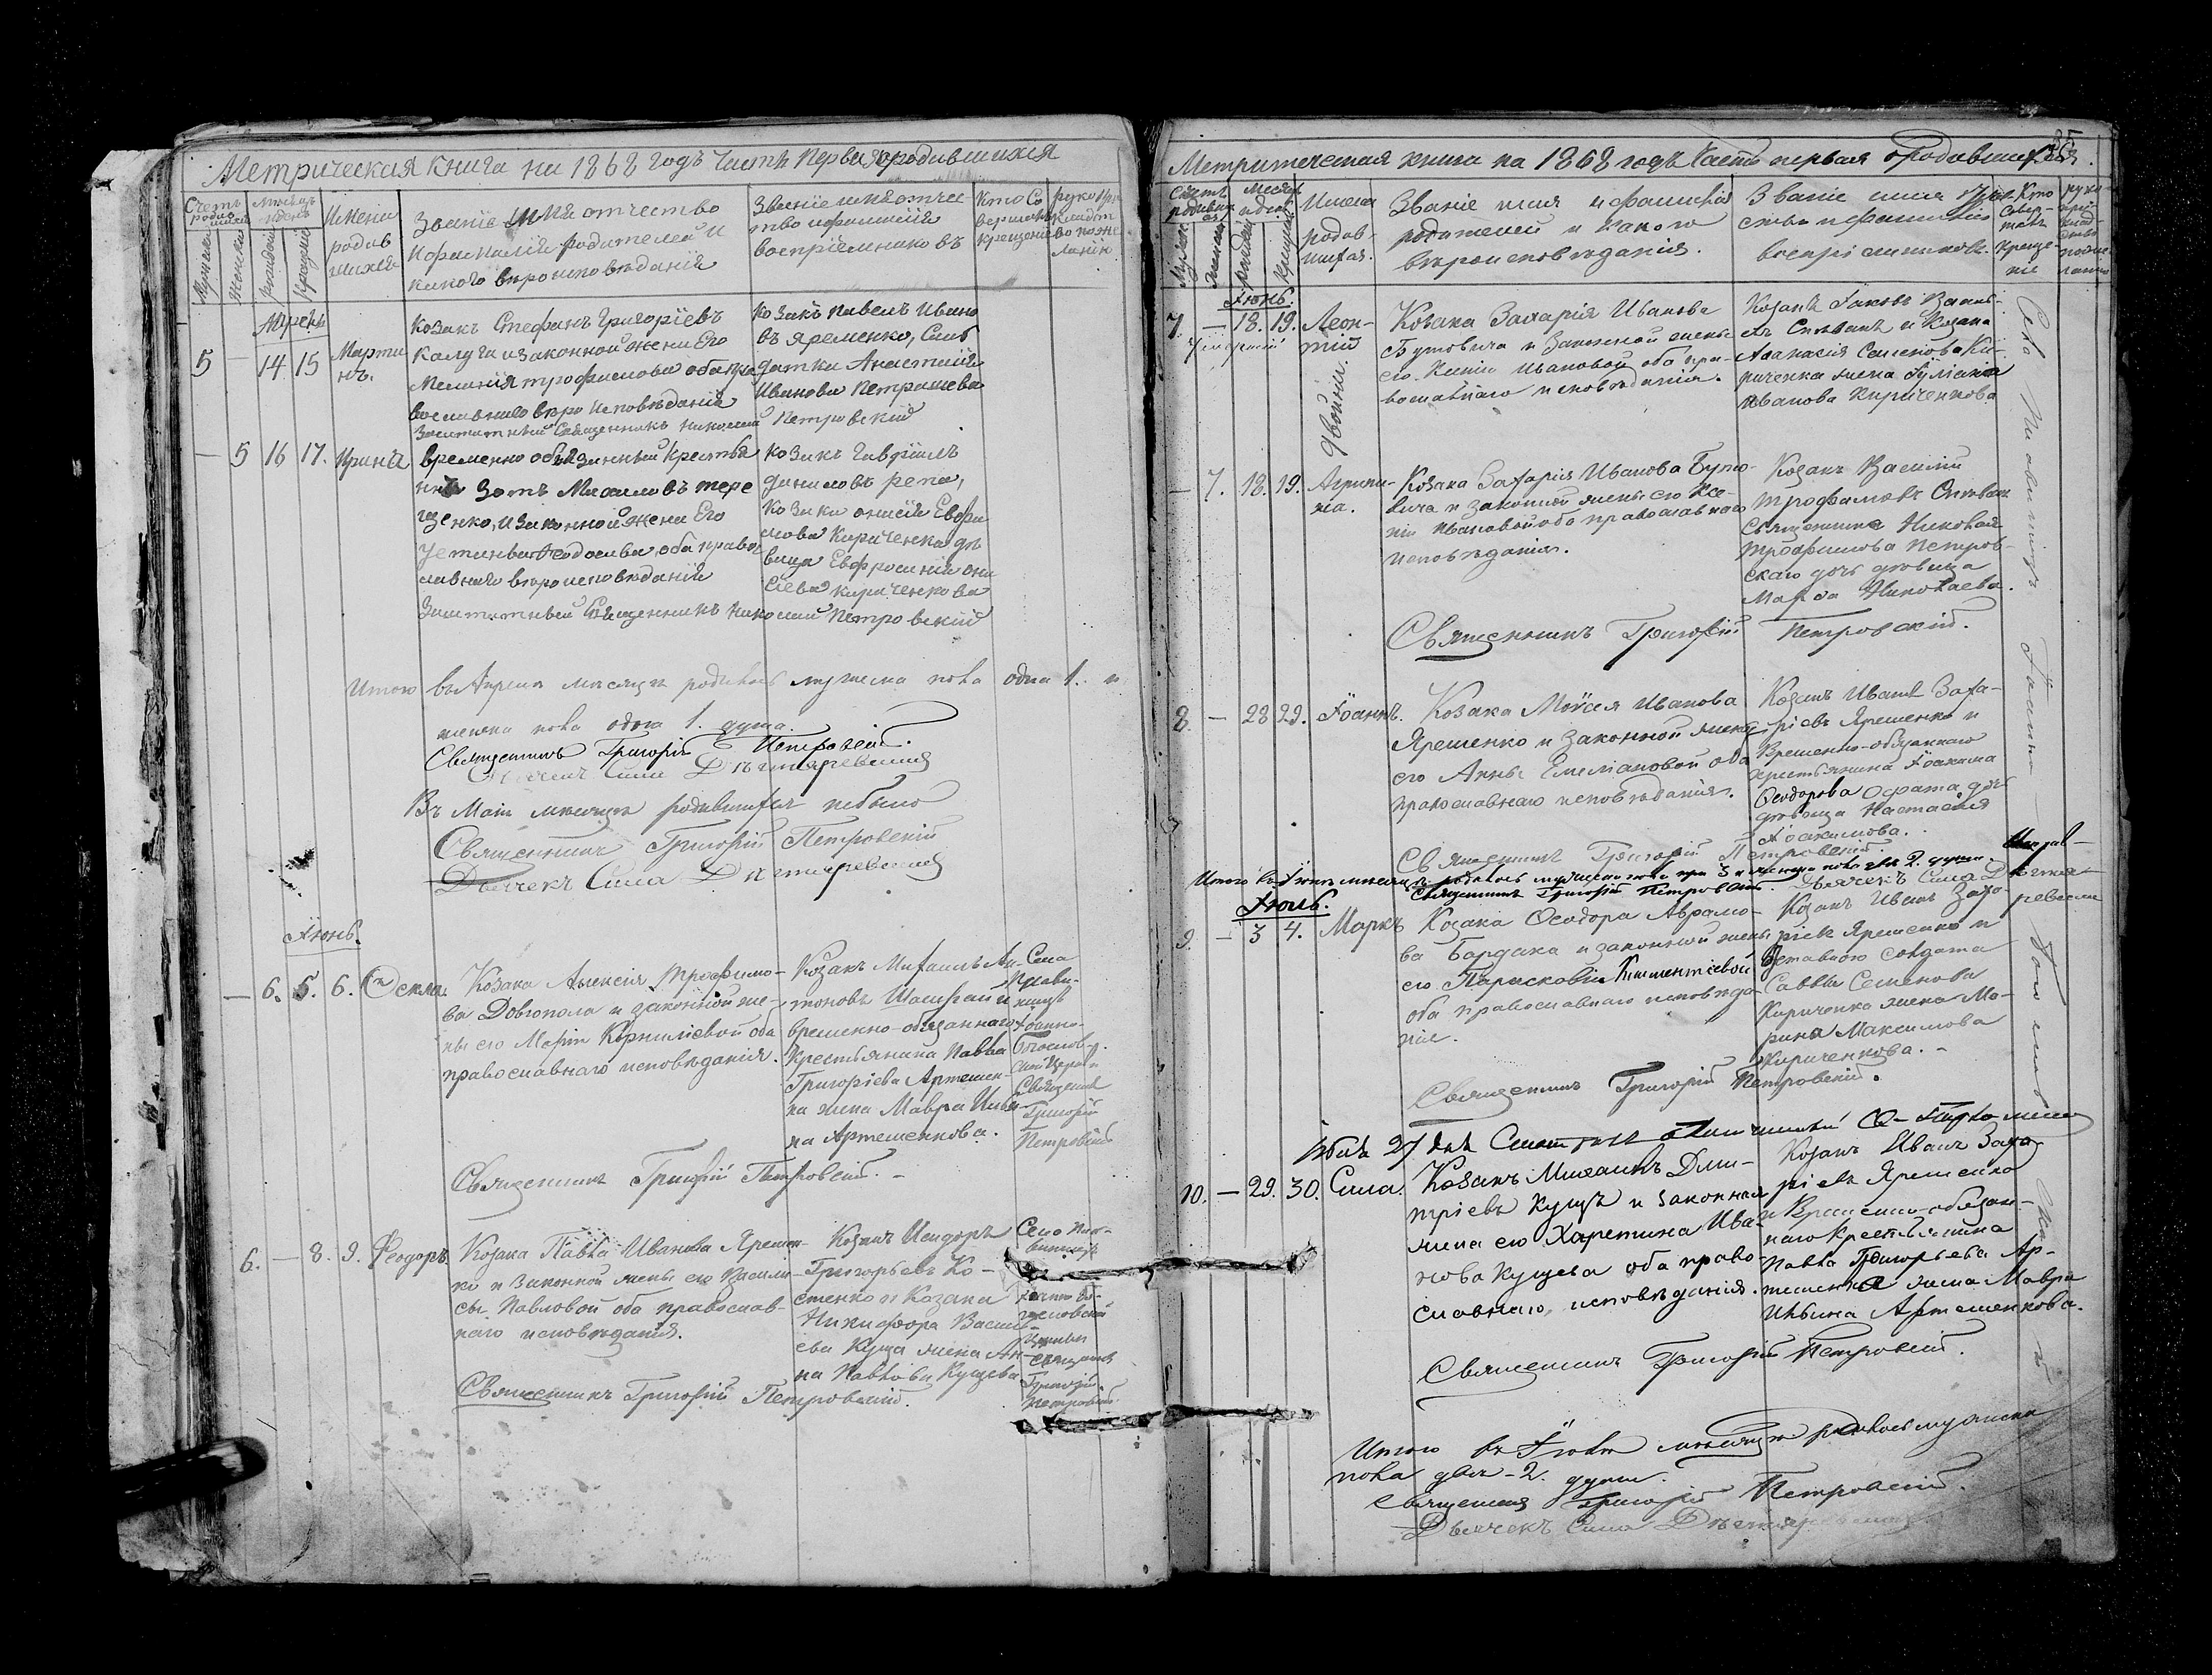 Метрическая книга на 1868 годъ часть первая о родившихся
Счетъ родившихся
Мужеска
Женска
Мѣсяцъ и день
рожденія
крещенія
Имена
родив
шихся
Званіе имя отчество
и фамилія родителей и
какого вѣроисповѣданія
Званіе имя отчес
тво и фамилія
воспріемниковъ
Кто со
вершалъ
крещеніе
рукопри
кладст
во по же
ланію
Апрель
5
14 15
Марти
нъ.
Козакъ Стефанъ Григоріевъ
Калуга и законной жени Его
Меланія трофимова оба пра
вославнаго вѣроисповѣданія
Козакъ павелъ Ивано
въ яременко, Солд
датки Анастасія
Иванова Петрашева
Заштатный Священникъ Николай Петровскій
— 5 16 17. Ирина
временно обязанный Крестья
нинъ Зотъ Михаиловъ тере
щенко, и законной жени Его
Устинья Федосіева, оба право
славнаго вѣроисповѣданія
козакъ Гавріилъ
даниловъ репа,
козака онисія Евфи
мова Кириченка дѣ
вица Евфросинія они
сіева кириченкова
Заштатный Священникъ Николай Петровскій
Итого въ Апрелѣ мѣсяцѣ родилось мужеска пола одна 1. и
женска пола одна 1. душа.
Священникъ Григорій Петровскій.
Дьячекъ Сила Дѣхтяревскій
Въ Маѣ мѣсяцѣ родившихся небыло
Священникъ Григорій Петровскій
Дьячекъ Сила Дѣхтяревскій
Іюнь.
— 6. 5. 6. Ѳекла.
Козака Алексія Трофимо-
ва Довгопола и законной же-
ны его Маріи Корниліевой оба
православнаго исповѣданія.
Козакъ Михаилъ Ан-
тоновъ и
временно-обязаннаго
Крестьянина Павла
Григоріева Артемен-
ка жена Мавра Ильи-
на Артеменкова.
Села
Іоанно-
Богослов-
ской Церкви
Священникъ
Григорій
Петровскій
Священникъ Григорій Петровскій. -
6. — 8. 9. Феодоръ
Козака Павла Иванова Яремен-
ки и законной жены его Васили-
сы Павловой оба православ-
наго исповѣданія.
Козакъ Исидоръ
Григорьевъ Ко-
стенко и Козака
Никифора Васил-
ева Куща жена Ан-
на Павлова Кущева
Село
Іоанно Бо-
гословской
Церкви
Священникъ
Григорій
Петровскій
Священникъ Григорій Петровскій.
Метрическая книга на 1868 годъ Часть первая о родившихся.
Счетъ
родивших
ся
Мужеска
Женска
Мѣсяцъ
и день
рожденія
Крещенія
Имена
родив-
шихся.
Званіе имя и фамилія
родителей и какого
вѣроисповѣданія.
Званіе имя отче-
ство и фамилія
воспріемниковъ.
Кто
Совер-
шалъ
Креще-
ніе
руко
при
клад-
ство
по же
ланію
Іюнь.
7 — 18. 19.
Леон-
тій
двойни.
Козака Захарія Иванова
Бутовича и законной жены
его Ксеніи Ивановой оба пра-
вославнаго исповѣданія.
Козакъ Іаковъ Васил-
евъ и Козака
Аѳанасія Семенова Ки-
риченка жена Іуліана
Иванова Кириченкова
— 7. 18. 19.
Агрипи-
на.
Козака Захарія Иванова Буто-
вича и законной жены его Ксе-
ніи Ивановой оба православнаго
исповѣданія.
Козакъ Василій
Трофимовъ
Священника Николая
Трофимова Петров-
скаго дочь дѣвица
Марѳа Николаева.
Священникъ Григорій Петровскій.
8 — 28 29. Іоаннъ.
Козака Мойсея Иванова
Яременко и законной жены
его Анны Емеліановой оба
православнаго исповѣданія.
Козакъ Иванъ Заха-
ріевъ Яременко и
Временно-обязаннаго
крестьянина Іоакима
Ѳеодорова дочь
дѣвица Настасія
Іоакимова.
Священникъ Григорій Петровскій.
Итого въ Іюнѣ мѣсяцѣ родилось мужеска пола три 3 и женска пола двѣ 2. души.
Священникъ Григорій Петровскій. Дьячекъ Сила Дѣхтя-
ревскій
Іюль.
9. — 3 4. Маркъ
Козака Ѳеодора Аврамо-
ва Бардака и законной жены
его Парасковіи Климентіевой
оба православнаго исповѣда-
ніе.
Козакъ Иванъ Заха-
ріевъ Яременко и
Отставного солдата
Саввы Семенова
Кириченка жена Ма-
рина Максимова
Кириченкова. -
Священникъ Григорій Петровскій.
10. — 29. 30. Сила.
Козакъ Михаилъ Дми-
тріевъ Кущъ и законная
жена его Харитина Ива-
нова Кущева оба право-
славнаго исповѣданія.
Козакъ Иванъ Заха
ріевъ Яременко
и Временно-обязан-
наго Крестьянина
Павла Григорьева Ар-
теменка жена Мавра
Ильина Артеменкова.
Священникъ Григорій Петровскій.
Итого въ Іюлѣ мѣсяцѣ родилось мужеска
пола двѣ - 2. души.
Священникъ Григорій Петровскій.
Дьячекъ Сила Дѣхтяревскій